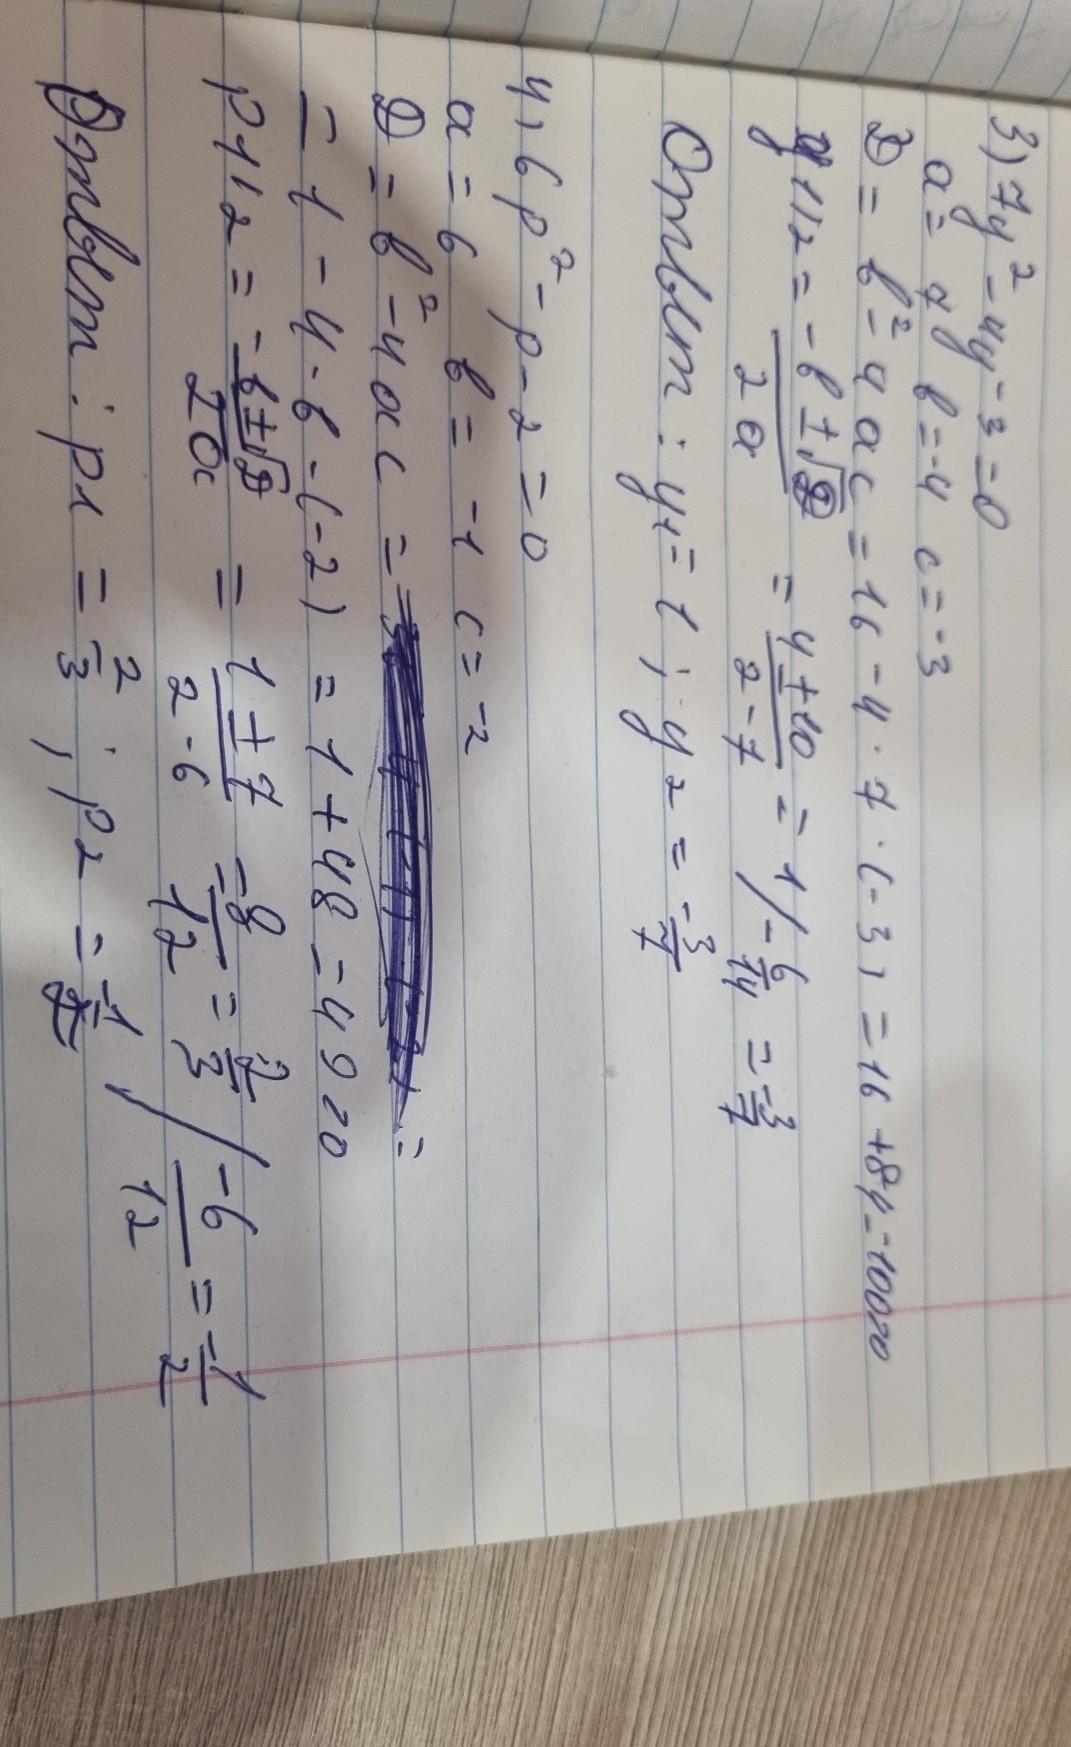 3) 7y² - 4y - 3 = 0
a = 7 b = -4 c = -3
D = b² - 4ac = 16 - 4 · 7 · (-3) = 16 + 84 = 100>0
y1,2 = -b ± √D / 2a = 4 ± 10 / 2 - 7 = 1 / -6/14 = -3/7
Ответ: y1 = 1 ; y2 = -3/7
4) 6p² - p - 2 = 0
a = 6 b = -1 c = -2
D = b² - 4ac = =
= 1 - 4 - 6 - (-2) = 1 + 48 = 49>0
p1,2 = -b ± √D / 2a = 1 ± 7 / 2 - 6 = 8/12 = 2/3 / -6/12 = -1/2
Ответ: p1 = 2/3 ; p2 = -1/2